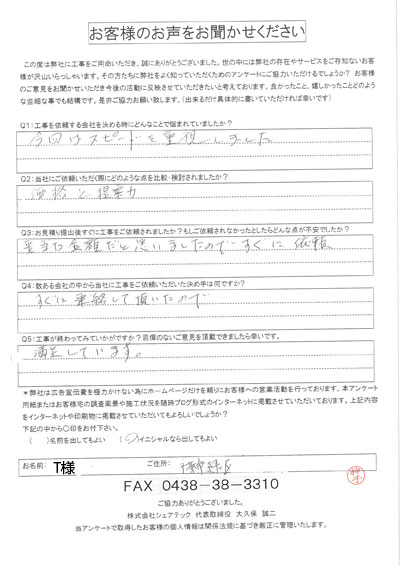 お客様のお声をお聞かせください
この度は弊社に工事をご用命いただき、誠にありがとうございました。世の中には弊社の存在やサービスをご存知ないお客
様が沢山いらっしゃいます。その方たちに弊社をよく知っていただくためのアンケートにご協力いただけるでしょうか？ お客様
のご意見をお聞かせいただき今後の活動に反映させていただきたいと考えております。良かったこと、嬉しかったことどのよう
な些細な事でも結構です。是非ご協力お願い致します。（出来るだけ具体的に書いていただければ幸いです）
Q1：工事を依頼する会社を決める時にどんなことで悩まれていましたか？
今回はスピードを重視しました
Q2：当社にご依頼いただく際にどのような点を比較・検討されましたか？
価格と提案力
Q3：お見積り提出後すぐに工事をご依頼されましたか？もしご依頼されなかったとしたらどんな点が不安でしたか？
妥当な金額だと思いましたので すぐに 依頼
Q4：数ある会社の中から当社に工事をご依頼いただいた決め手は何ですか？
すぐに連絡して頂いたので
Q5：工事が終わってみていかがですか？忌憚のないご意見を頂戴できましたら幸いです。
満足しています。
＊弊社は広告宣伝費を極力かけない為にホームページだけを頼りにお客様への営業活動を行っております。本アンケート
用紙またはお客様宅の調査風景や施工状況を随時ブログ形式のインターネットに掲載させていただいております。上記内容
をインターネットや印刷物に掲載させていただいてもよろしいでしょうか？
下記の中から〇印をお付下さい。
（ ）名前を出してもよい （〇）イニシャルなら出してもよい
お名前： T様 ご住所：
FAX 0438－38－3310
ご協力ありがとうございました。
株式会社シェアテック 代表取締役 大久保 誠二
当アンケートで取得したお客様の個人情報は関係法規に基づき厳正に管理いたします。